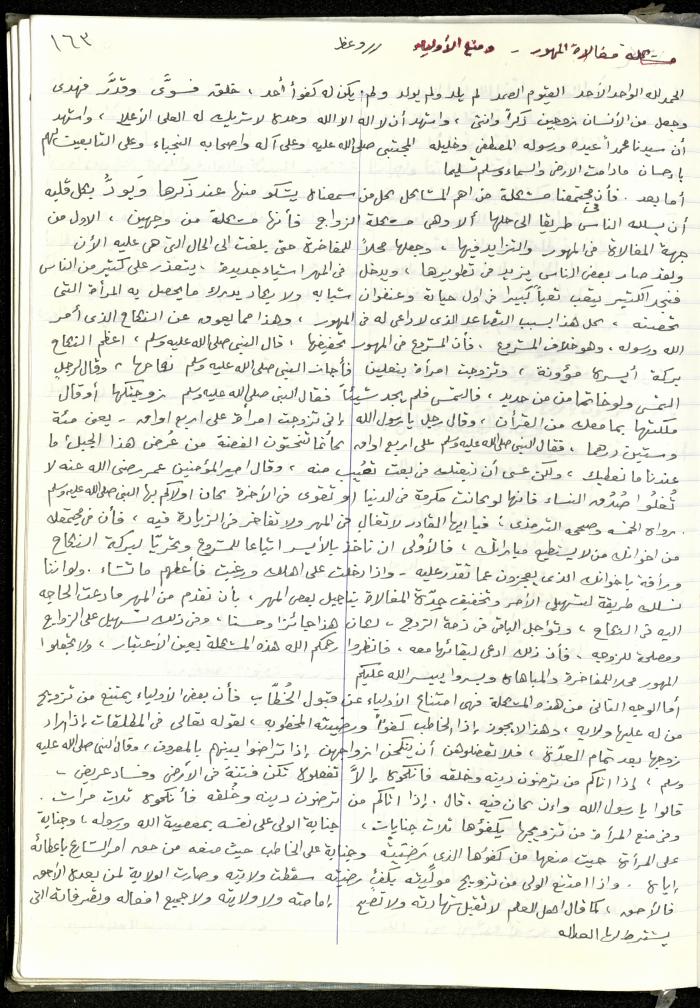 مشكلة مغالاة المهور - ومنع الأولياء // وعظ ١٦٣
الحمد لله الواحد الأحد القيوم الصمد لم يلد ولم يولد ولم يكن له كفواً أحد ، خلق فسوَّى وقدَّر فهدى
وجعل من الأنسان زوجين ذكراً وانثى ، واشهد أن لا اله الا الله وحده لا شريك له العلي الأعلا ، واشهد
أن سيدنا محمداً عبده ورسوله المصطفى وخليله المجتبى صلى الله عليه وعلى آله واصحابه النجباء وعلى التابعين لهم
بإحسان مادامت الارض والسماء وسلم تسليما
أما بعد . فأن في مجتمعنا مشكلة من اهم المشاكل كل من سمعناه يشكو منها عند ذكرها وَيودُّ بكل قلبه
أن يسلك الناس طريقا الى حلها ألا وهي مشكلة الزواج فأنها مشكلة من وجهين ، الاول من
جهة المغالاة في المهور والتزايد فيها ، وجعلها محلاً للمفاخرة حتى بلغت الى الحال التي هي عليه الأن
ولقد صار بعض الناس يزيد في تطويرها ، ويدخل في المهر اشياء جديدة ، يتعذر على كثير من الناس
فنجد الكثير يتعب تعباً كبيرا في اول حياته وعنفوان شبابه ولا يكاد يدرك ما يحصل به المرأة التي
تحصنه ، كل هذا بسبب التصاعد الذي لا داعى له في المهور ، وهذا مما يعوق عن النكاح الذي أمر
الله ورسوله ، وهو خلاف المشروع . فأن المشروع في المهور تخفيفها ، قال النبي صلى الله عليه وسلم ، اعظم النكاح
بركة أيسره مؤونة ، وتزوجت امرأة بنعلين فأجاز النبي صلى الله عليه وسلم نكاحها ، وقال لرجل
التمس ولو خاتما من حديد ، فالتمس فلم يجد شيئاً فقال النبي صلى الله عليه وسلم زوجتكها أو قال
ملكتها بما معك من القرأن ، وقال رجل يا رسول الله إني تزوجت امرأة على اربع اواق - يعني مئة
وستين درهما ، فقال النبي صلى الله عليه وسلم على اربع اواق كأنما تنحتون الفضة من عُرض هذا الجبل ! ما
عندنا ما نعطيك ، ولكن عسى أن نبعثك في بعث تصيب منه ، وقال امير المؤمنين عمر رضي الله عنه لا
تُغلُوا صُدُق النساء فانها لو كانت مكرمة في الدنيا او تقوى في الأخرة كان اولاكم بها النبي صلى الله عليه وسلم
رواه الخمسه وصححه الترمذي ، فيا ايها القادر لا تغالي في المهر ولا تفاخر في الزيادة فيه ، فأن في مجتمعك
من اخوانك من لا يستطيع مباراتك ، فالأولى ان تأخذ بالأيسر اتباعا للمشروع وتحريّا لبركة النكاح
ورأفة باخوانك الذي يعجزون عما تقدر عليه - واذا دخلت على اهلك ورغبت فأعطهم ما تشاء . ولو اننا
نسلك طريقة لتسهيل الأمر وتخفيف حِدّة المغالاة بتأجيل بعض المهر ، بأن نقدم من المهر ما دعت الحاجه
اليه في النكاح ، ونؤجل الباقي في ذمة الزوج - لكان هذا جائزا وحسنا ، وفي ذلك تسهيل على الزواج
ومصلحة للزوجه ، فأن ذلك ادعى لبقائها معه ، فانظروا رحمكم الله هذه المشكلة بعين الأعتبار ، ولا تجعلوا
المهور محلا للمفاخرة والمباهاة ويسروا ييسر الله عليكم
أما الوجه الثاني من هذه المشكلة فهي امتناع الأولياء عن قبول الخُطّاب فأن بعض الأولياء يمتنع من تزويج
من له عليها ولايه ، وهذا لا يجوز إذا الخاطب كفوأً ورضيته المخطوبه ، لقوله تعالى في المطلقات إذا اراد
زوجها بعد تمام العدّة ، فلا تعضلوهن أن ينكحن ازواجهن إذا تراضوا بينهم بالمعروف ، وقال النبي صلى الله عليه
وسلم ، إذا اتاكم من ترضون دينه وخلقه فأنكحوه إلاّ تفعلوه تكن فتنة في الأرض وفساد عريض -
قالوا يا رسول الله وإن كان فيه . قال . إذا اتاكم من ترضون دينه وخُلقه فأنكحوه ثلاث مرات .
وفي منع المرأة من تزويجها بكفؤها ثلاث جنايات ، جناية الولي على نفسه بمعصية الله ورسوله ، وجناية
على المرأة حيث منعها من كفؤها الذي رَضيَتْه وجناية على الخاطب حيث منعه من حقه امر الشارع بإعطائه
إياه . واذا امتنع الولي من تزويج موليّته بكفئٍ رضيته سقطت ولايته وصارت الولاية لمن بعده الأحق
فالأحق ، كما قال اهل العلم لا تقبل شهادته ولا تصح إمامته ولا ولايته ولا جميع افعاله وتصرفاته التي
يشترط لها العداله